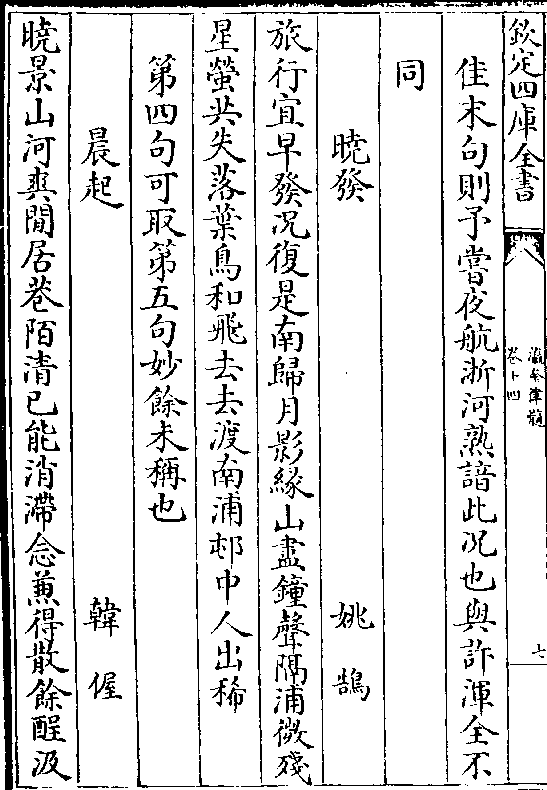 欽定四庫全書
瀛奎律髓
卷十四
七
佳末句則予嘗夜航浙河熟諳此况也與許渾全不
同
曉發 姚鵠
旅行宜早發况復是南歸月影緣山盡鐘聲隔浦微殘
星螢共失落葉鳥和飛去去渡南浦邨中人出稀
第四句可取第五句妙餘未稱也
晨起 韓偓
曉景山河爽閒居巷陌清已能消滯念兼得散餘酲汲